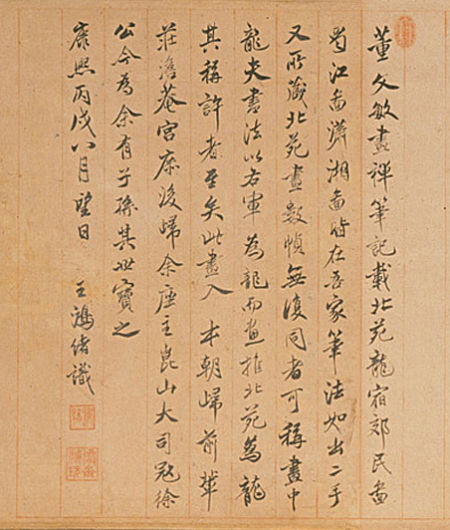 董文敏畫禪筆記載北苑龍宿郊民圖
蜀江圖瀟湘圖皆在吾家筆法如出二手
又所藏北苑畫數幀無復同者可稱畫中
龍夫書法以右軍為龍而畫推北苑為龍
其稱許者至矣此畫入 本朝歸前輩
莊澹菴宮庶後歸余座主崑山大司寇徐
公今為余有子孫其世寶之
康熙丙戌八月望日 王鴻緒識